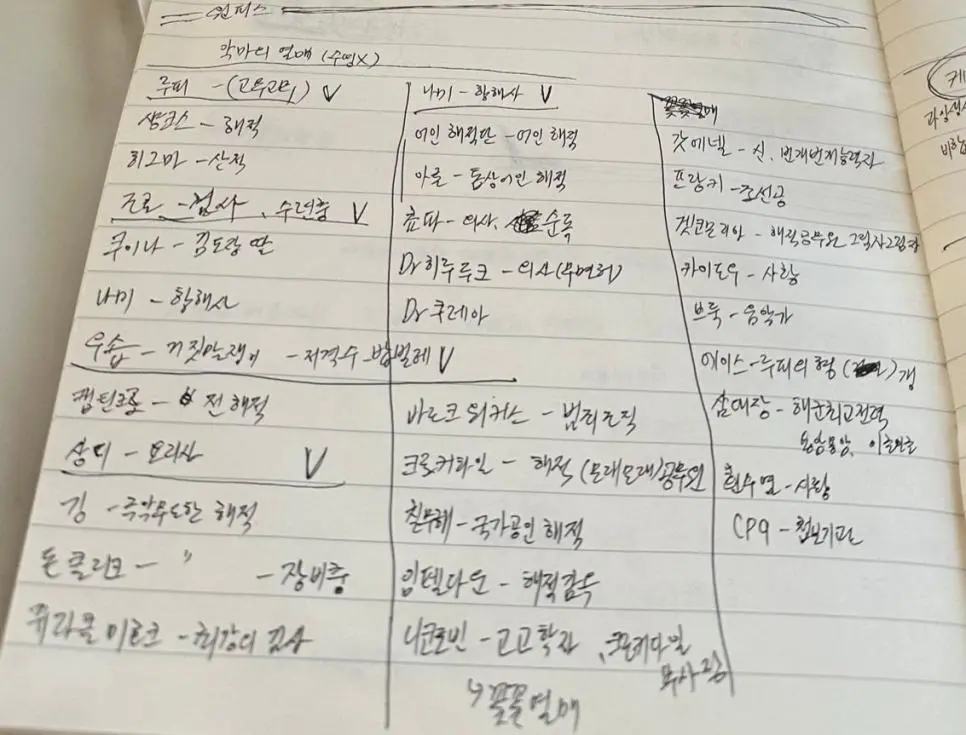 원피스
악마의 열매 (수영X)
루피 - (고무고무) V
샹크스 - 해적
히그마 - 산적
조로 - 검사, 수련중 V
쿠이나 - 검도장 딸
나미 - 항해사
우솝 - 거짓말쟁이 - 저격수, 밥벌레 V
캡틴크로 - 전 해적
상디 - 요리사 V
깅 - 극악무도한 해적
돈클리크 - " - 장비충
쥬라클 미호크 - 최강의 검사
나미 - 항해사 V
어인 해적단 - 어인 해적
아론 - 톱상어인 해적
쵸파 - 의사, 순록
Dr 히루루크 - 의사 (무면허)
Dr 쿠레아
바로크 워커스 - 범죄조직
크로커다일 - 해적 (모래모래) 공무원
칠무해 - 국가공인 해적
임펠다운 - 해적감옥
니코로빈 - 고고학자, 크로커다일
↳ 꽃꽃열매
갓에넬 - 신, 번개번개능력자
프랑키 - 조선공
겟코모리아 - 해적공무원 그림자그림자
카이도우 - 사황
브룩 - 음악가
에이스 - 루피의 형
삼대장 - 해군최고전력
흰수염 - 사황
CP9 - 첩보기관
케